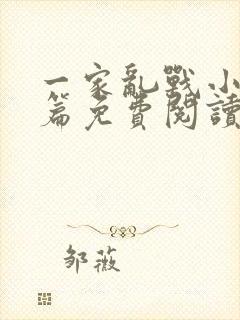 一家亂戰小
篇免費閱讀
邹薇